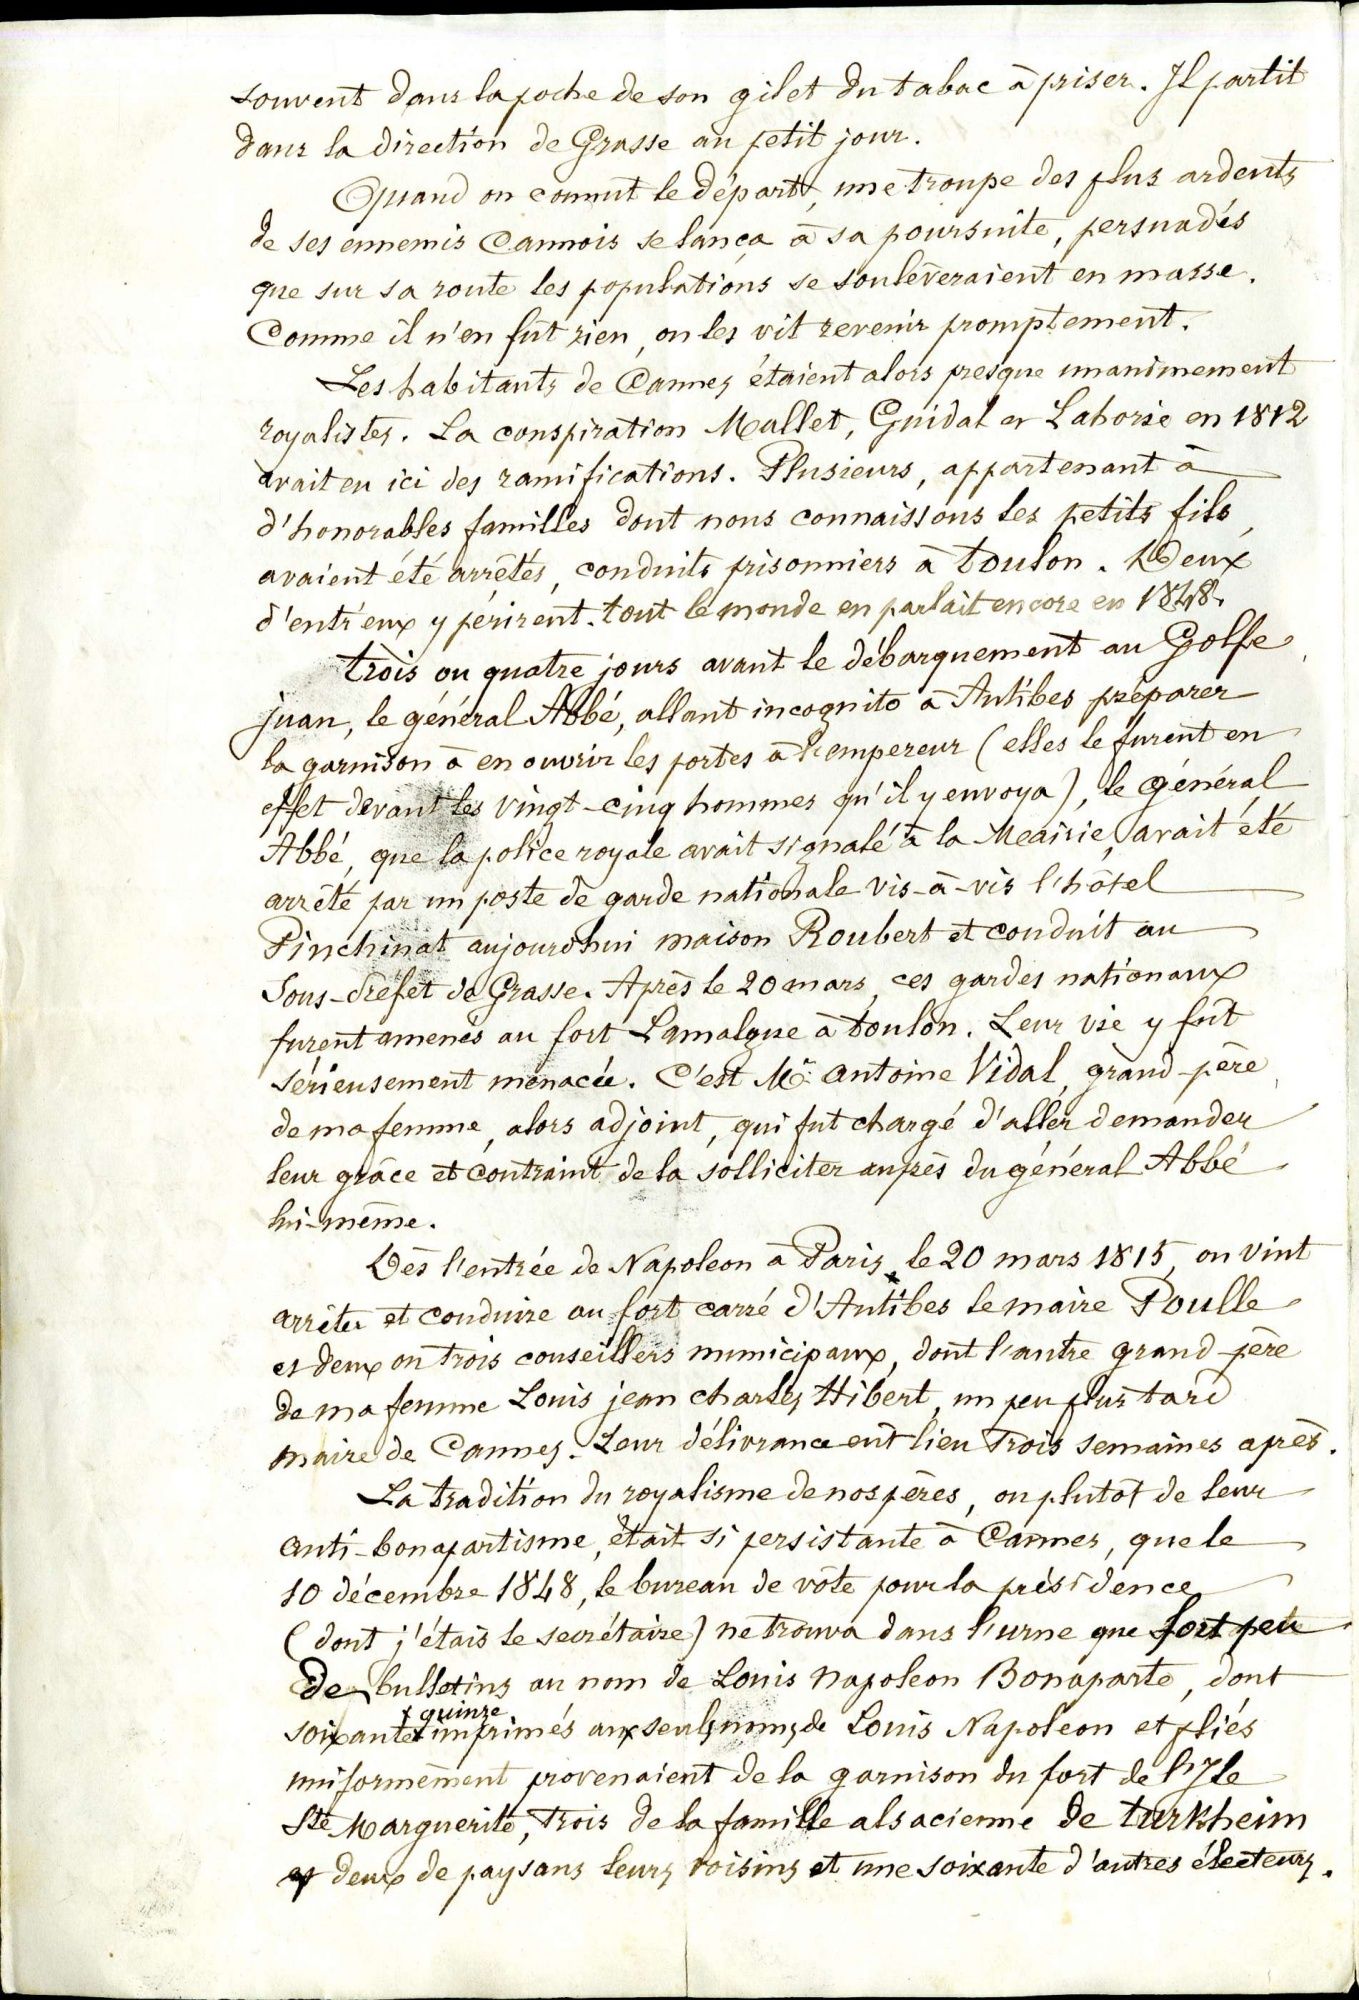 souvent dans la poche de son gilet du tabac à priser. Il partit
dans la direction de Grasse au petit jour.
Quand on connut le départ, une troupe des plus ardents
de ses ennemis Cannois se lança à sa poursuite, persuadés
que sur sa route les populations se soulèveraient en masse.
Comme il n'en fut rien, on les vit revenir promptement.
Les habitants de Cannes étaient alors presque unanimement
royalistes. La conspiration Mallet, Guidal et Lahorie en 1812
avait eu ici des ramifications. Plusieurs, appartenant à
d'honorables familles dont nous connaissons les petits fils,
avaient été arrêtés, conduits prisonniers à toulon. Deux
d'entr'eux y périrent. tout le monde en parlait encore en 1848.
trois ou quatre jours avant le débarquement au Golfe
juan, le général Abbé, allant incognito à Antibes préparer
la garnison à en ouvrir les portes à l'empereur (elles le furent en
effet devant les vingt-cinq hommes qu'il y envoya), le général
Abbé, que la police royale avait signalé à la Meairie, avait été
arrêté par un poste de garde nationale vis-à-vis l'hôtel
Pinchinat aujourdhui maison Roubert et conduit au
Sous-Préfet de Grasse. Après le 20 mars, ces gardes nationaux
furent amenés au fort Lamalgue à toulon. Leur vie y fut
sérieusement menacée. C'est Mr. Antoine Vidal, grand-père
de ma femme, alors adjoint, qui fut chargé d'aller demander
leur grâce et contraint de la solliciter auprès du général Abbé
lui-même.
Dès l'entrée de Napoleon à Paris, le 20 mars 1815, on vint
arrêter et conduire au fort carré d'Antibes le maire Poulle
et deux ou trois conseillers municipaux, dont l'autre grand-père
de ma femme Louis jean charles Hibert, un peu plus tard
maire de Cannes. Leur délivrance eût lieu trois semaines après.
La tradition du royalisme de nos pères, ou plutôt de leur
anti-bonapartisme, était si persistante à Cannes, que le
10 décembre 1848, le bureau de vôte pour la présidence
(dont j'étais le secrétaire) ne trouva dans l'urne que fort peu
de bulletins au nom de Louis Napoleon Bonaparte, dont
quinze
soixante imprimés aux seuls noms de Louis Napoleon et pliés
uniformément provenaient de la garnison du fort de l'Ile
Ste Marguerite, trois de la famille alsacienne de turkheim
et deux de paysans leurs voisins et une soixante d'autres électeurs.